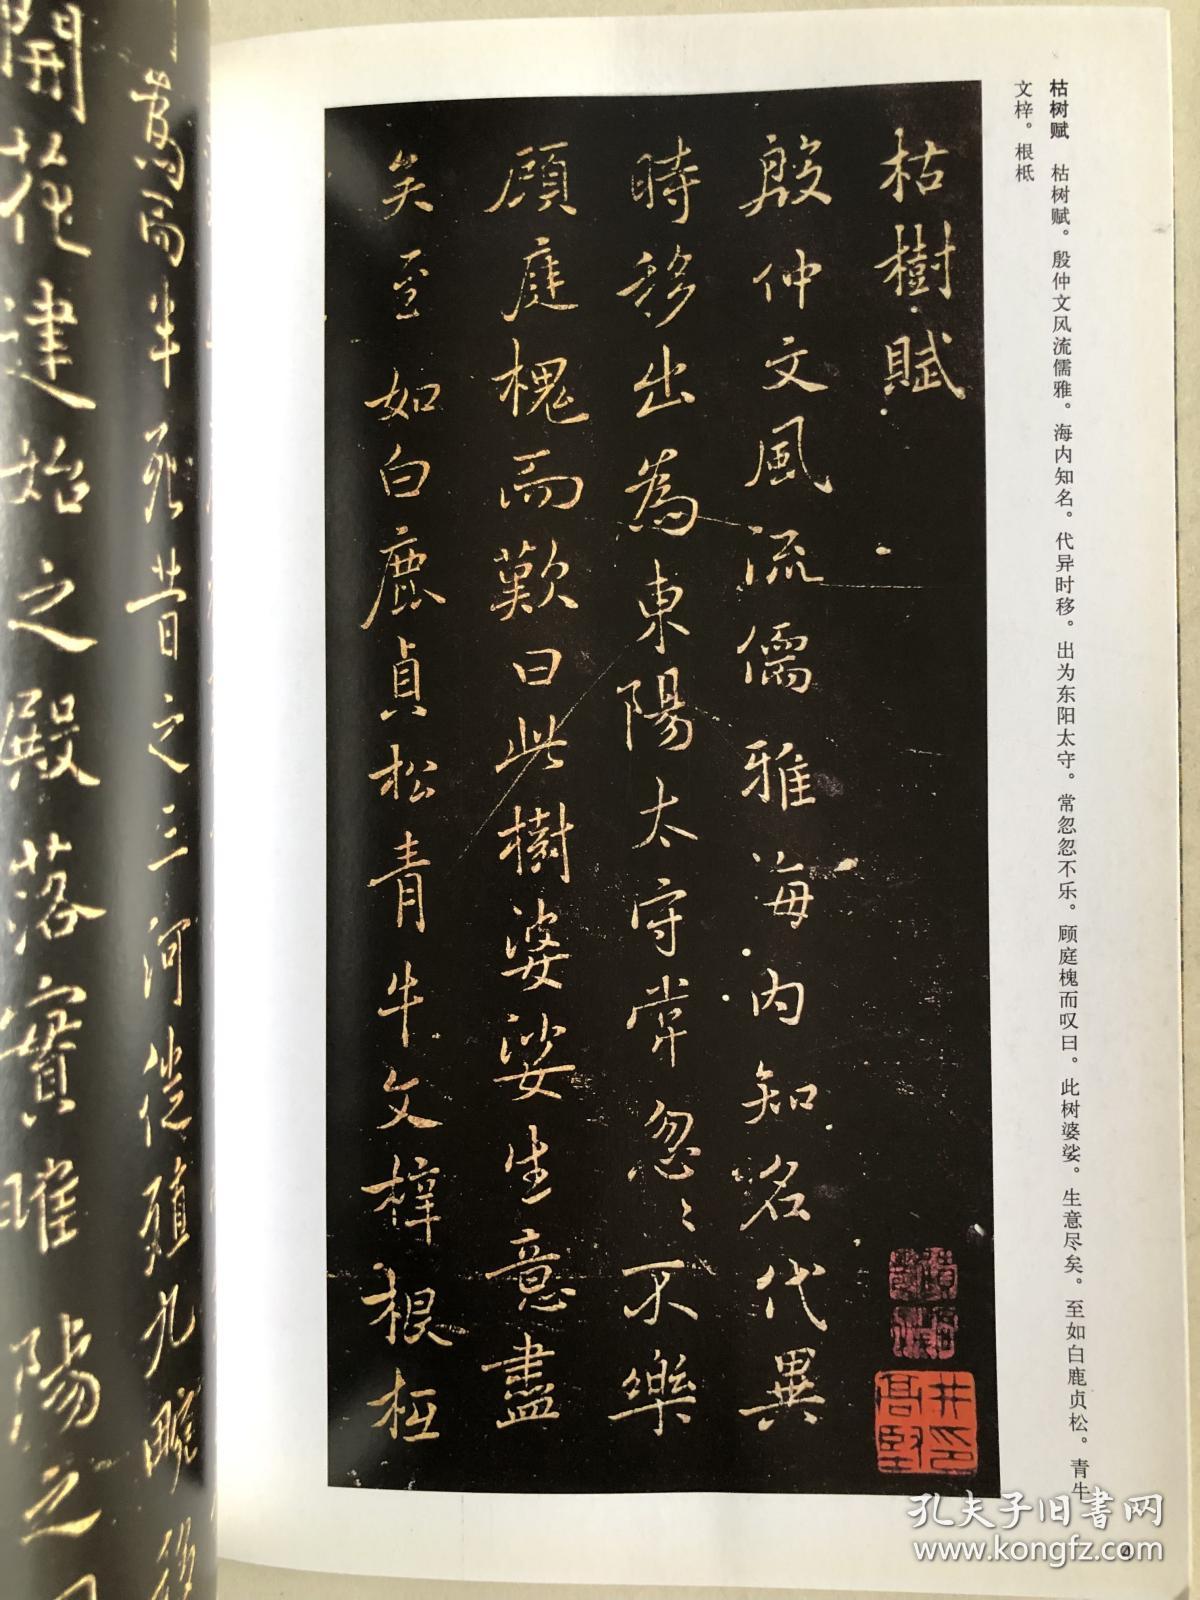 枯树赋　枯树赋。殷仲文风流儒雅。海内知名。代异时移。出为东阳太守。常忽忽不乐。顾庭槐而叹曰。此树婆娑。生意尽矣。至如白鹿贞松。青牛
文梓。根柢
枯樹賦
殷仲文風流儒雅海内知名代異
時移出為東陽太守常忽〻不樂
顧庭槐而歎曰此樹婆娑生意盡
矣至如白鹿貞松青牛文梓根柢
為而半死昔之三河徙殖九畹移
開花建始之殿落實睢陽之
孔夫子旧书网
www.kongfz.com